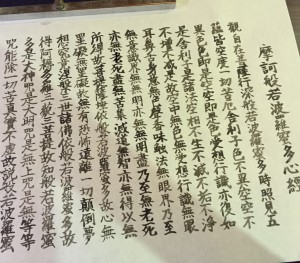 摩訶般若波羅蜜多心經
觀自在菩薩行深般若波羅蜜多時照見五
蘊皆空度一切苦厄舍利子色不異空空不
異色色即是空空即是色受想行識亦復如
是舍利子是諸法空相不生不滅不垢不淨
不增不減是故空中無色無受想行識無眼
耳鼻舌身意無色聲香味触法無眼界乃至
無意識界無無明亦無無明盡乃至無老死
亦無老死盡無苦集滅道無智亦無得以無
所得故菩提薩埵依般若波羅蜜多故心無
罣礙無罣礙故無有恐怖遠離一切顛倒夢
想究竟涅槃三世諸佛依般若波羅蜜多故
得阿耨多羅三藐三菩提故知般若波羅蜜
多是大神咒是大明咒是無上咒是無等等
咒能除一切苦真實不虛故說般若波羅蜜